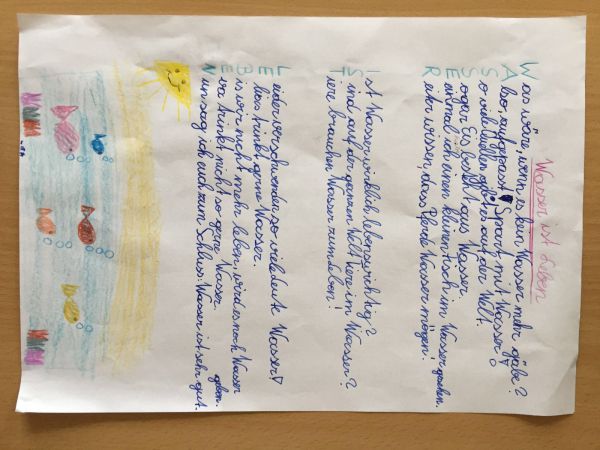 Wasser ist Leben
Was wäre wenn es kein Wasser mehr gäbe?
Also, aufgepasst! Sparz mit Wasser!
So viel Quellen gibt es auf der Welt.
Sogar Eis besteht aus Wasser.
Einmal ich einen kleinen Fisch im Wasser gesehen.
Reiter wissen, dass Pferde Wasser mögen!
Ist Wasser wirklich lebenswichtig?
Sind auf der ganzen Welt Tiere im Wasser?
Tiere brauchen Wasser zum leben!
Leider verschwenden so viele Leute Wasser!
Elias trinkt gerne Wasser.
Bis wir nicht mehr leben, wird es noch Wasser
geben.
Eva trinkt nicht so gerne Wasser.
Nun sag ich euch zum Schluss Wasser ist sehr gut.